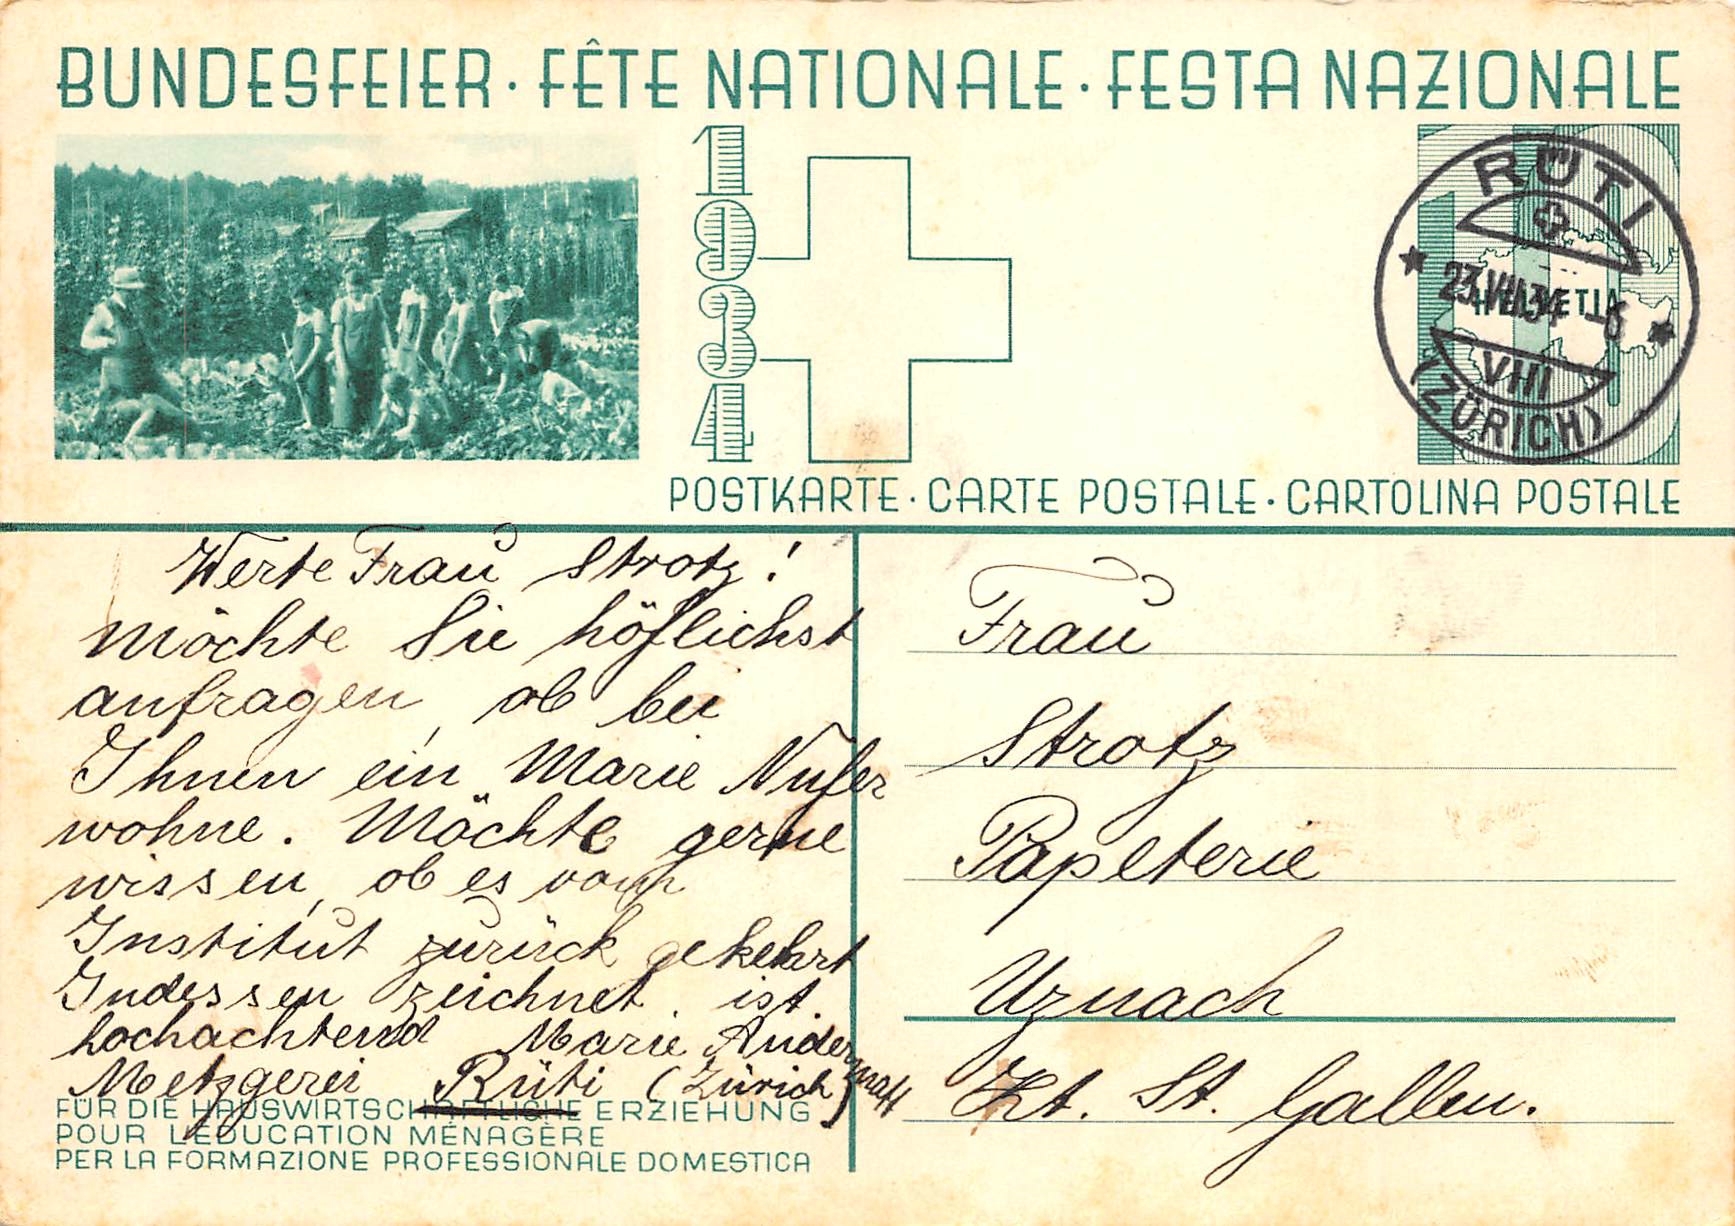 BUNDESFEIER · FÊTE NATIONALE · FESTA NAZIONALE
1934
RÜTI
23.VIII.34 -6
HELVETIA
10
VHI
(ZÜRICH)
POSTKARTE · CARTE POSTALE · CARTOLINA POSTALE
Werte Frau Strotz!
Möchte Sie höflichst
anfragen, ob bei
Ihnen ein Marie Nufer
wohne. Möchte gerne
wissen, ob es vom
Institut zurück gekehrt
Indessen zeichnet ist
hochachtend Marie Andermatt
Metzgerei Rüti (Zürich)
FÜR DIE HAUSWIRTSCHAFTLICHE ERZIEHUNG
POUR L'EDUCATION MÉNAGÈRE
PER LA FORMAZIONE PROFESSIONALE DOMESTICA
Frau
Strotz
Papeterie
Uznach
Kt. St. Gallen.